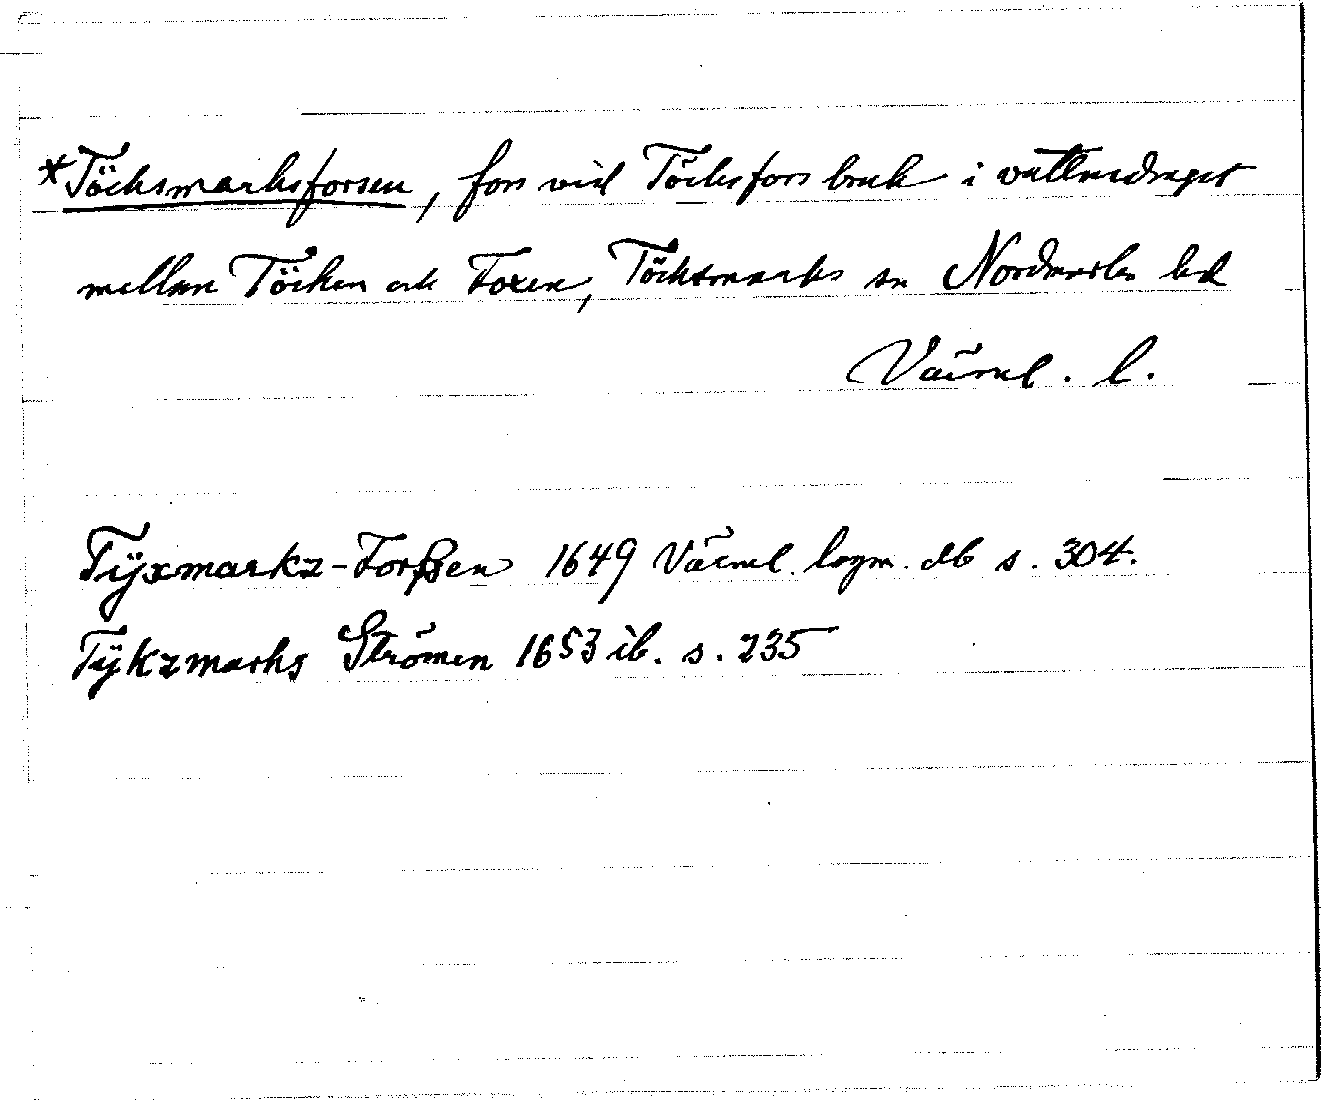 *Töcksmarksforsen, fors vid Töcksfors bruk i vattendraget
mellan Töcken och Foxen, Töcksmarks sn Nordmarks hd
Värml. l.
Tÿxmarkz-Forßen 1649 Värml. lagm. db s. 304.
Tÿkzmarks Strömen 1653 ib. s. 235